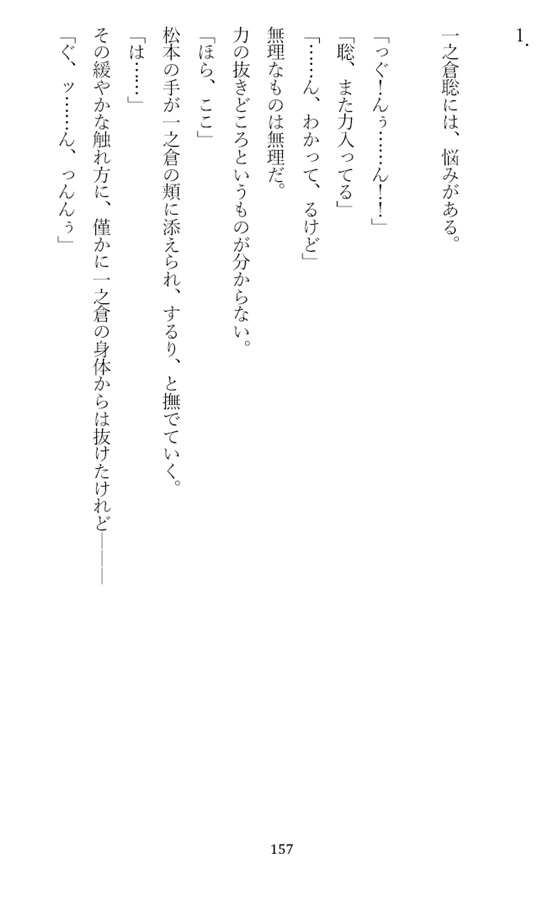 1.
一之倉聡には、悩みがある。
「っぐ！んぅ……ん！！」
「聡、また力入ってる」
「……ん、わかって、るけど」
無理なものは無理だ。
力の抜きどころというものが分からない。
「ほら、ここ」
松本の手が一之倉の頬に添えられ、するり、と撫でていく。
「は……」
その緩やかな触れ方に、僅かに一之倉の身体からは抜けたけれど―――
「ぐ、ッ……ん、っんんぅ」
157